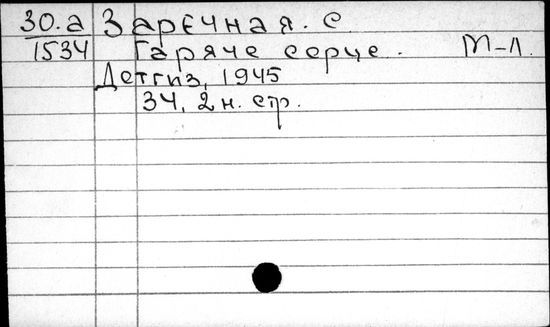 30.а Заречная. С.
1534 Гаряче серце. М-Л.
Детгиз, 1945
34, 2 н. стр.